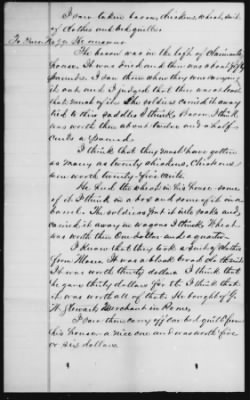 I saw taken bacon, chickens, wheat, suit
of clothes and bed quilts.
The bacon was in the loft of Claimants
house. It was dried and there was about fifty
pounds. I saw them when they were carrying
it out and I judged that there was at least
that much of it. The soldiers carried it away
tied to their saddles I think. Bacon I think
was worth then about twelve and a half
cents a pound.
I think that they must have gotten
as many as twenty chickens, Chickens
were worth twenty-five cents.
He had the wheat in his house - some
of it I think in a box and some of it in a
barrel. The soldiers put it into sacks and
carried it away in wagons I think. Wheat
was worth then one dollar and a quarter.
I know that they took a suit of clothes
from Moses. It was a black broad cloth suit.
It was worth thirty dollars I think that
he gave thirty dollars for it. I think that
it was worth all of that. He bought of G.
H. Stewart, Merchant in Rome,
I saw them carry off one bed quilt from
his house - a nice one and was worth five
or six dollars.